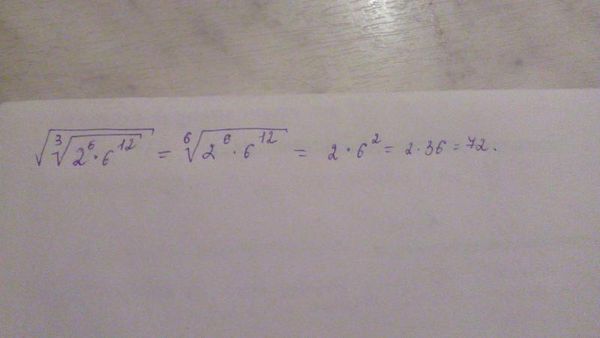 √(∛(2⁶·6¹²)) = ⁶√(2⁶·6¹²) = 2·6² = 2·36 = 72.